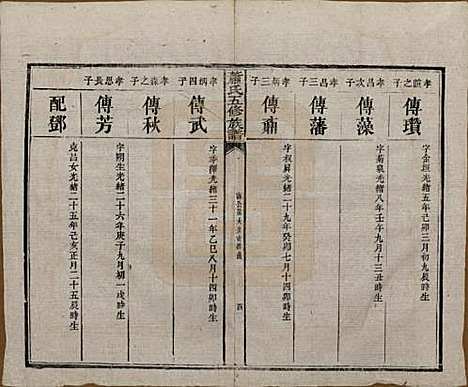 孝誼之子
傳瓚
字金垣光緒五年己卯三月初九辰時生
孝昌次子
傳藻
字菊泉光緒八年壬午九月十三丑時生
孝昌三子
傳藩
孝炳三子
傳鼐
字叔屏光緒二十九年癸卯七月十四卯時生
蕭氏五修族譜
四
孝炳四子
傳武
光緒三十一年乙巳八月十四卯時生
孝森之子
傳秋
字朔生光緒二十六年庚子九月初一戌時生
孝恩長子
傳芳
配鄧
克昌女光緒二十五年己亥正月二十五辰時生